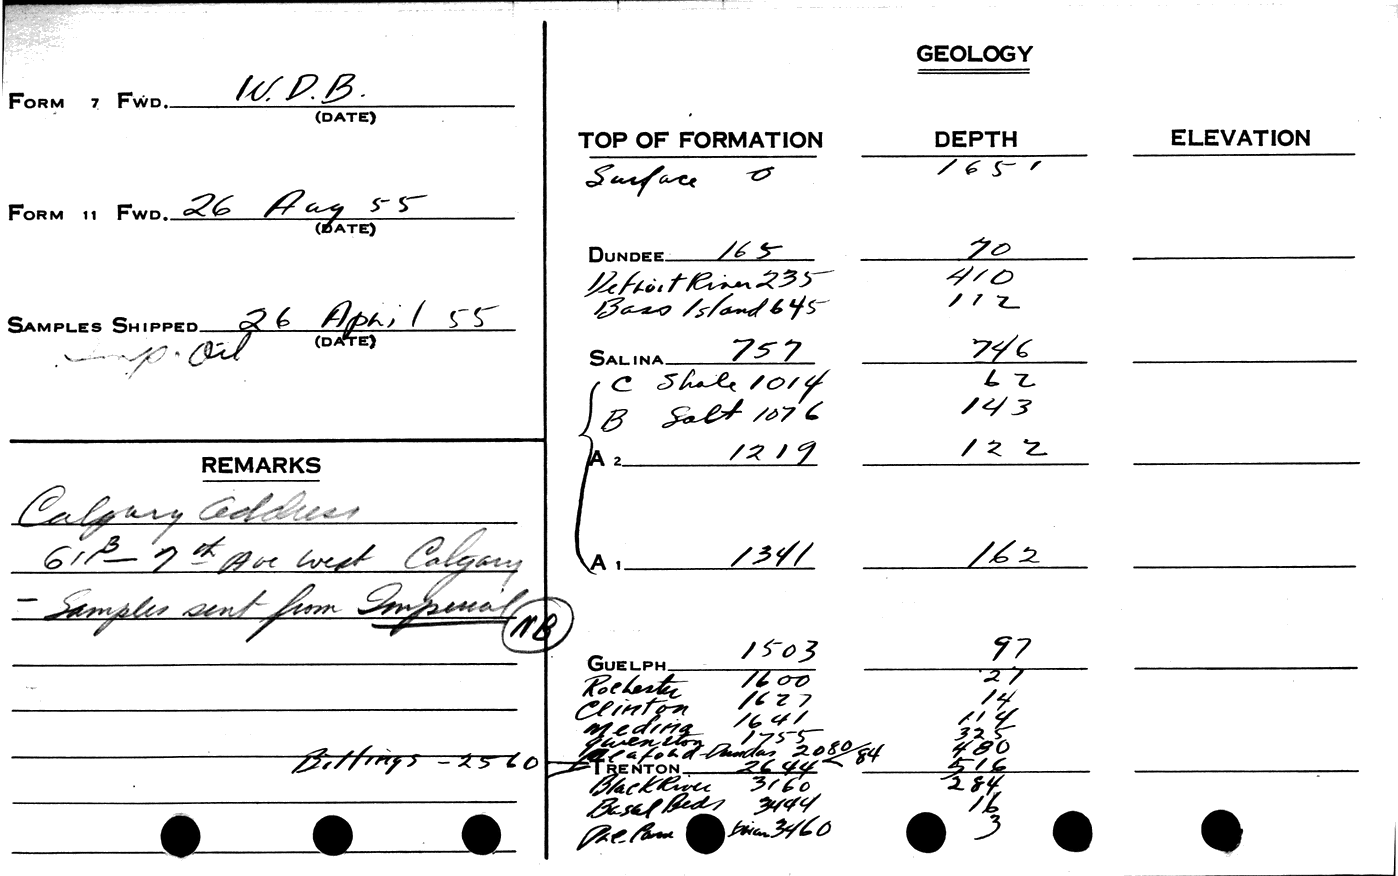 FORM 7 FWD. W.D.B.
(DATE)
FORM 11 FWD. 26 Aug 55
(DATE)
SAMPLES SHIPPED 26 April 55
(DATE)
Imp. Oil
REMARKS
Calgary address
611B - 7th Ave West Calgary
- Samples sent from Imperial
NB
Billings - 2560
GEOLOGY
TOP OF FORMATION DEPTH ELEVATION
Surface 0 165'
DUNDEE 165 70
Detroit River 235 410
Bass Island 645 112
SALINA 757 746
C Shale 1014 62
B Salt 1076 143
A 2 1219 122
A 1 1341 162
GUELPH 1503 97
Rochester 1600 27
Clinton 1627 14
Medina 1641 114
Queenston 1755 325
Meaford-Dundas 2080/84 480
TRENTON 2644 516
Black River 3160 284
Basal Beds 3444 16
Pre. Cam brian 3460 3